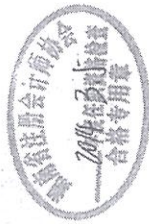 湖南省注册会计师协会
2014.3.5
任职资格检查
合格专用章